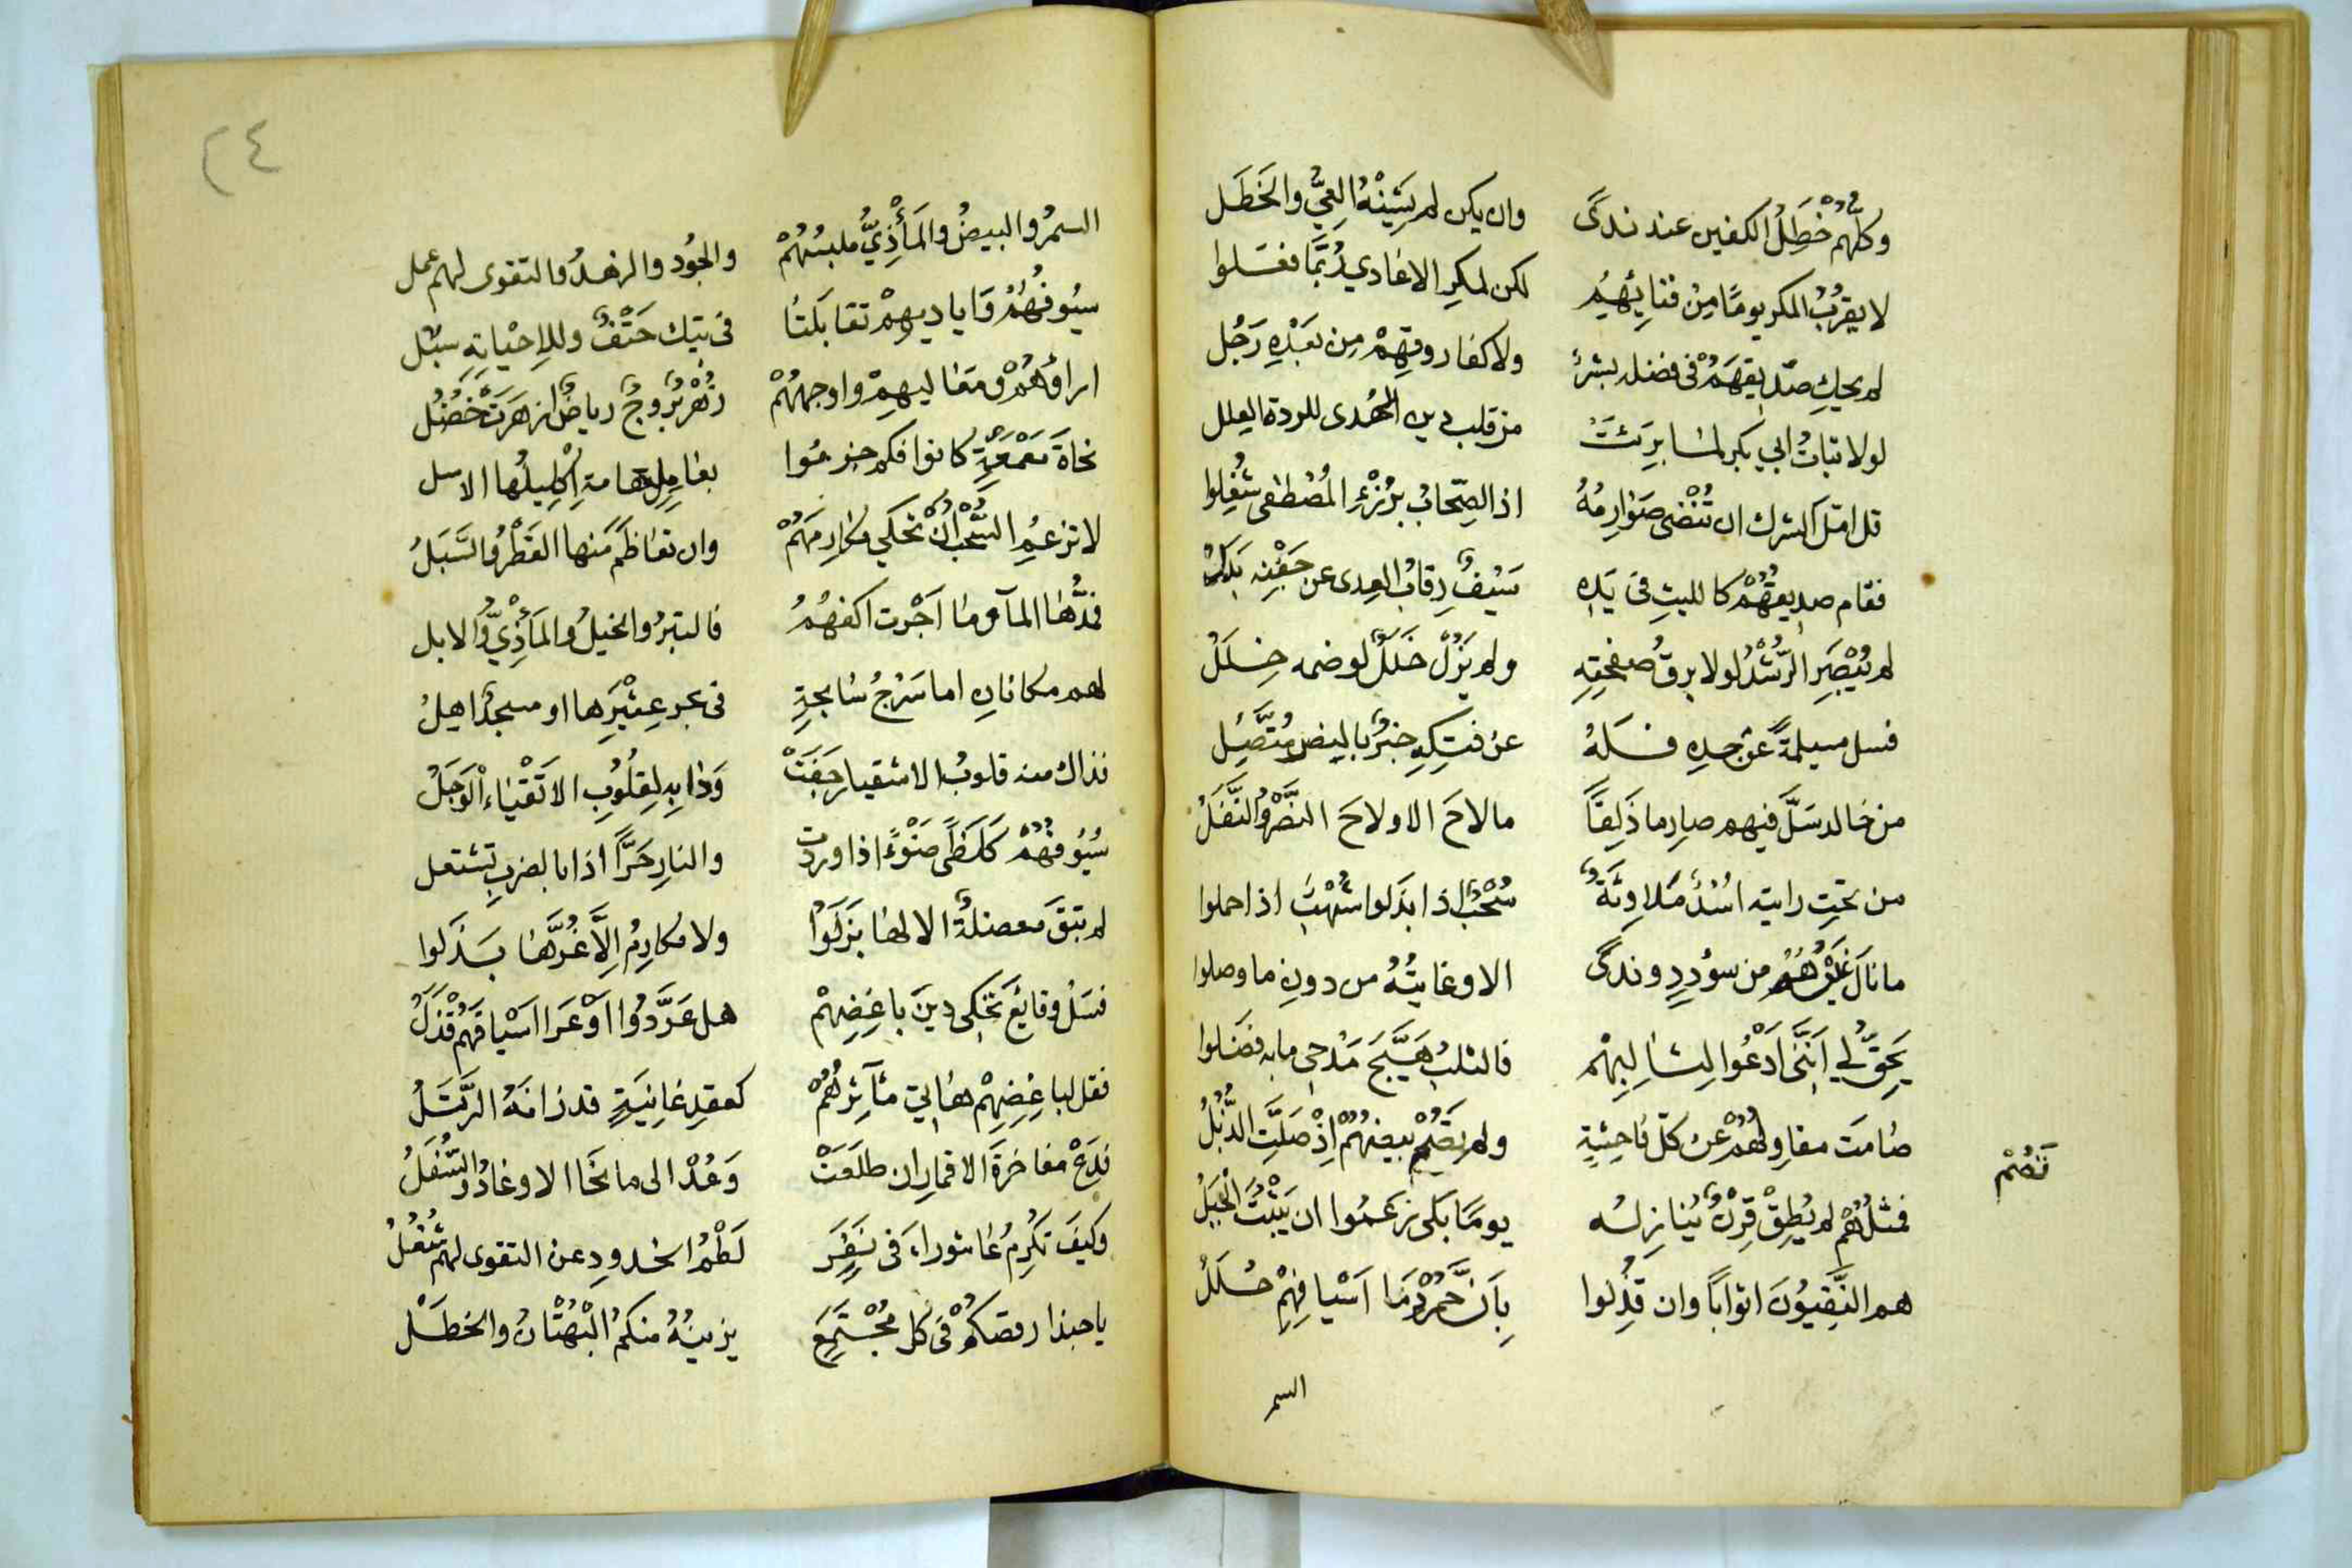 وكلُّهم خُطِلُ الكفين عند ندىً وان يكن لم يَشِنْهُ العِيُّ والخَطَل
لا يقرُبُ المكر يومًا مِنْ فنائِهُمُ لكن لمكرِ الاعادي رُبَّمَا فعَلوا
لم يحكِ صدّيقَهُمْ في فضله بشرٌ ولا كفاروقِهِمْ مِن بَعْدِهِ رَجُل
لولا ثباتُ ابي بكرٍ لما بَرِئتْ من قلب دين الهُدى للردة العِلل
قل امّل الشرك ان تُنْضى صَوَارِمُهُ اذ الصِحَابُ بِرُزْءِ المُصْطفى شُغِلوا
فقام صديقهُمْ كالليثِ في يَدِهِ سَيْفٌ رِقابُ العِدى عن جَفْنِهِ بَدَلُ
لم يُبْصَرِ الرُّشْدُ لولا برقُ صَفْحَتِهِ ولم يَزُلْ خَلَلٌ لو ضمه خِلَلُ
فسل مسيلمةً عن حده فَلَهُ عن فتكِهِ خبرٌ بالبيض مُتَّصِل
من خالد سَلَّ فيهم صارما ذَلِقًا ما لاحَ الا ولاحَ النَّصْرُ والنَّفَلُ
من تحتِ رايته اسُدٌ مَلاوِثَةٌ سُحْبٌ اذا بذلوا شُهْبٌ اذا حملوا
ما نالَ غَيْرُهُمُ من سؤددٍ وندىً الا وغايتُهُ من دونِ ما وصلوا
يَحِقُّ لي اَنَّني اَدْعُوا لِثالِبِهْم فالثلبُ هَيَّجَ مَدْحِي ما به فضَلوا
صَامَت مقاولُهُمْ عن كلّ فاحِشةٍ ولم تصُمْ بيضهُمْ اِذْ صَلَّتِ الذُّبُلُ
تَصُمْ
فمثلُهُمْ لم يُطِقْ قِرْنٌ يُنازِلُه يومًا بَلى زعَمُوا ان يَثْبُتَ الجَبَلُ
هم النَّقِيُّونَ اثوابًا وان قُتِلوا بِاَنَّ حُمْرَ دِمَا اَسْيافِهِمْ حُلَلُ
السمر
٢٤
السمْرُ والبيضُ والمَأْذِيُّ ملبسُهُمْ والجُود والزهدُ والتقوى لهم عمل
سيُوفُهُمُ وَاياديهِمْ تقابَلَتَا في تيك حَتْفٌ وللاحْيا بِهِ سُبُل
اراؤهُمْ ومَعَاليهِمْ واوجهُهُمْ زُهْرٌ بُرُوجٌ رياضٌ ازهرَتْ خُضُلُ
كانوا فكم جزعُوا الاسل
لا تزعُمِ السُّحْبَ اَنْ تحكي مكارِمَهُمْ وان تعاظَمَ منها القَطْرُ والسَّبَلُ
فمَدُّها المآ وما اَجْرت اكفهُمُ فالتبرُ والخيلُ والمَأْذِيُّ والابل
لهم مكانانِ اما سَرْجُ سَابحةٍ في بحر عِثْيَرِها او مسجدٌ اهِلُ
فذاك منه قلوبُ الاشقيا رجَفَتْ وَذا بِهِ لِقلُوبِ الاَتْقيَاءِ الْوَجَلُ
سُيُوفُهُمْ كَلَظًى ضَوْءًا اذا وردت والنارِ حَرًّا اذا بالضربِ تشتعل
لم تبقَ معضلةٌ الا لها نَزَلوْا ولا مكارِمُ اِلَّا غُرَّهَا بَذَلوا
فسَلْ وقائِعَ تحْكي دينَ باغِضِهِمْ هل عَرَّدُوا اَوْ عَرَا اَسْيافَهُمْ قَذَلُ
فقل لباغِضِهِمْ هَا لي مآثِرُهُمْ كعقدِ غانِيَةٍ قد زانَهُ الرَّتَلُ
فدَعْ مفاخَرةَ الاقمار ان طلَعَتْ وَعُدْ الى ما نحَا الاوغادُ والسُّفَلُ
وكيفَ تكْرِمُ عَاشوراءَ في نفَرٍ لَطْمُ الخدودِ عن التقوى لهم شُغُلُ
يا حبذا رقصكُمْ في كل مُجْتَمَعٍ يزينُهُ منكمُ البُهْتَانُ والخطَلْ